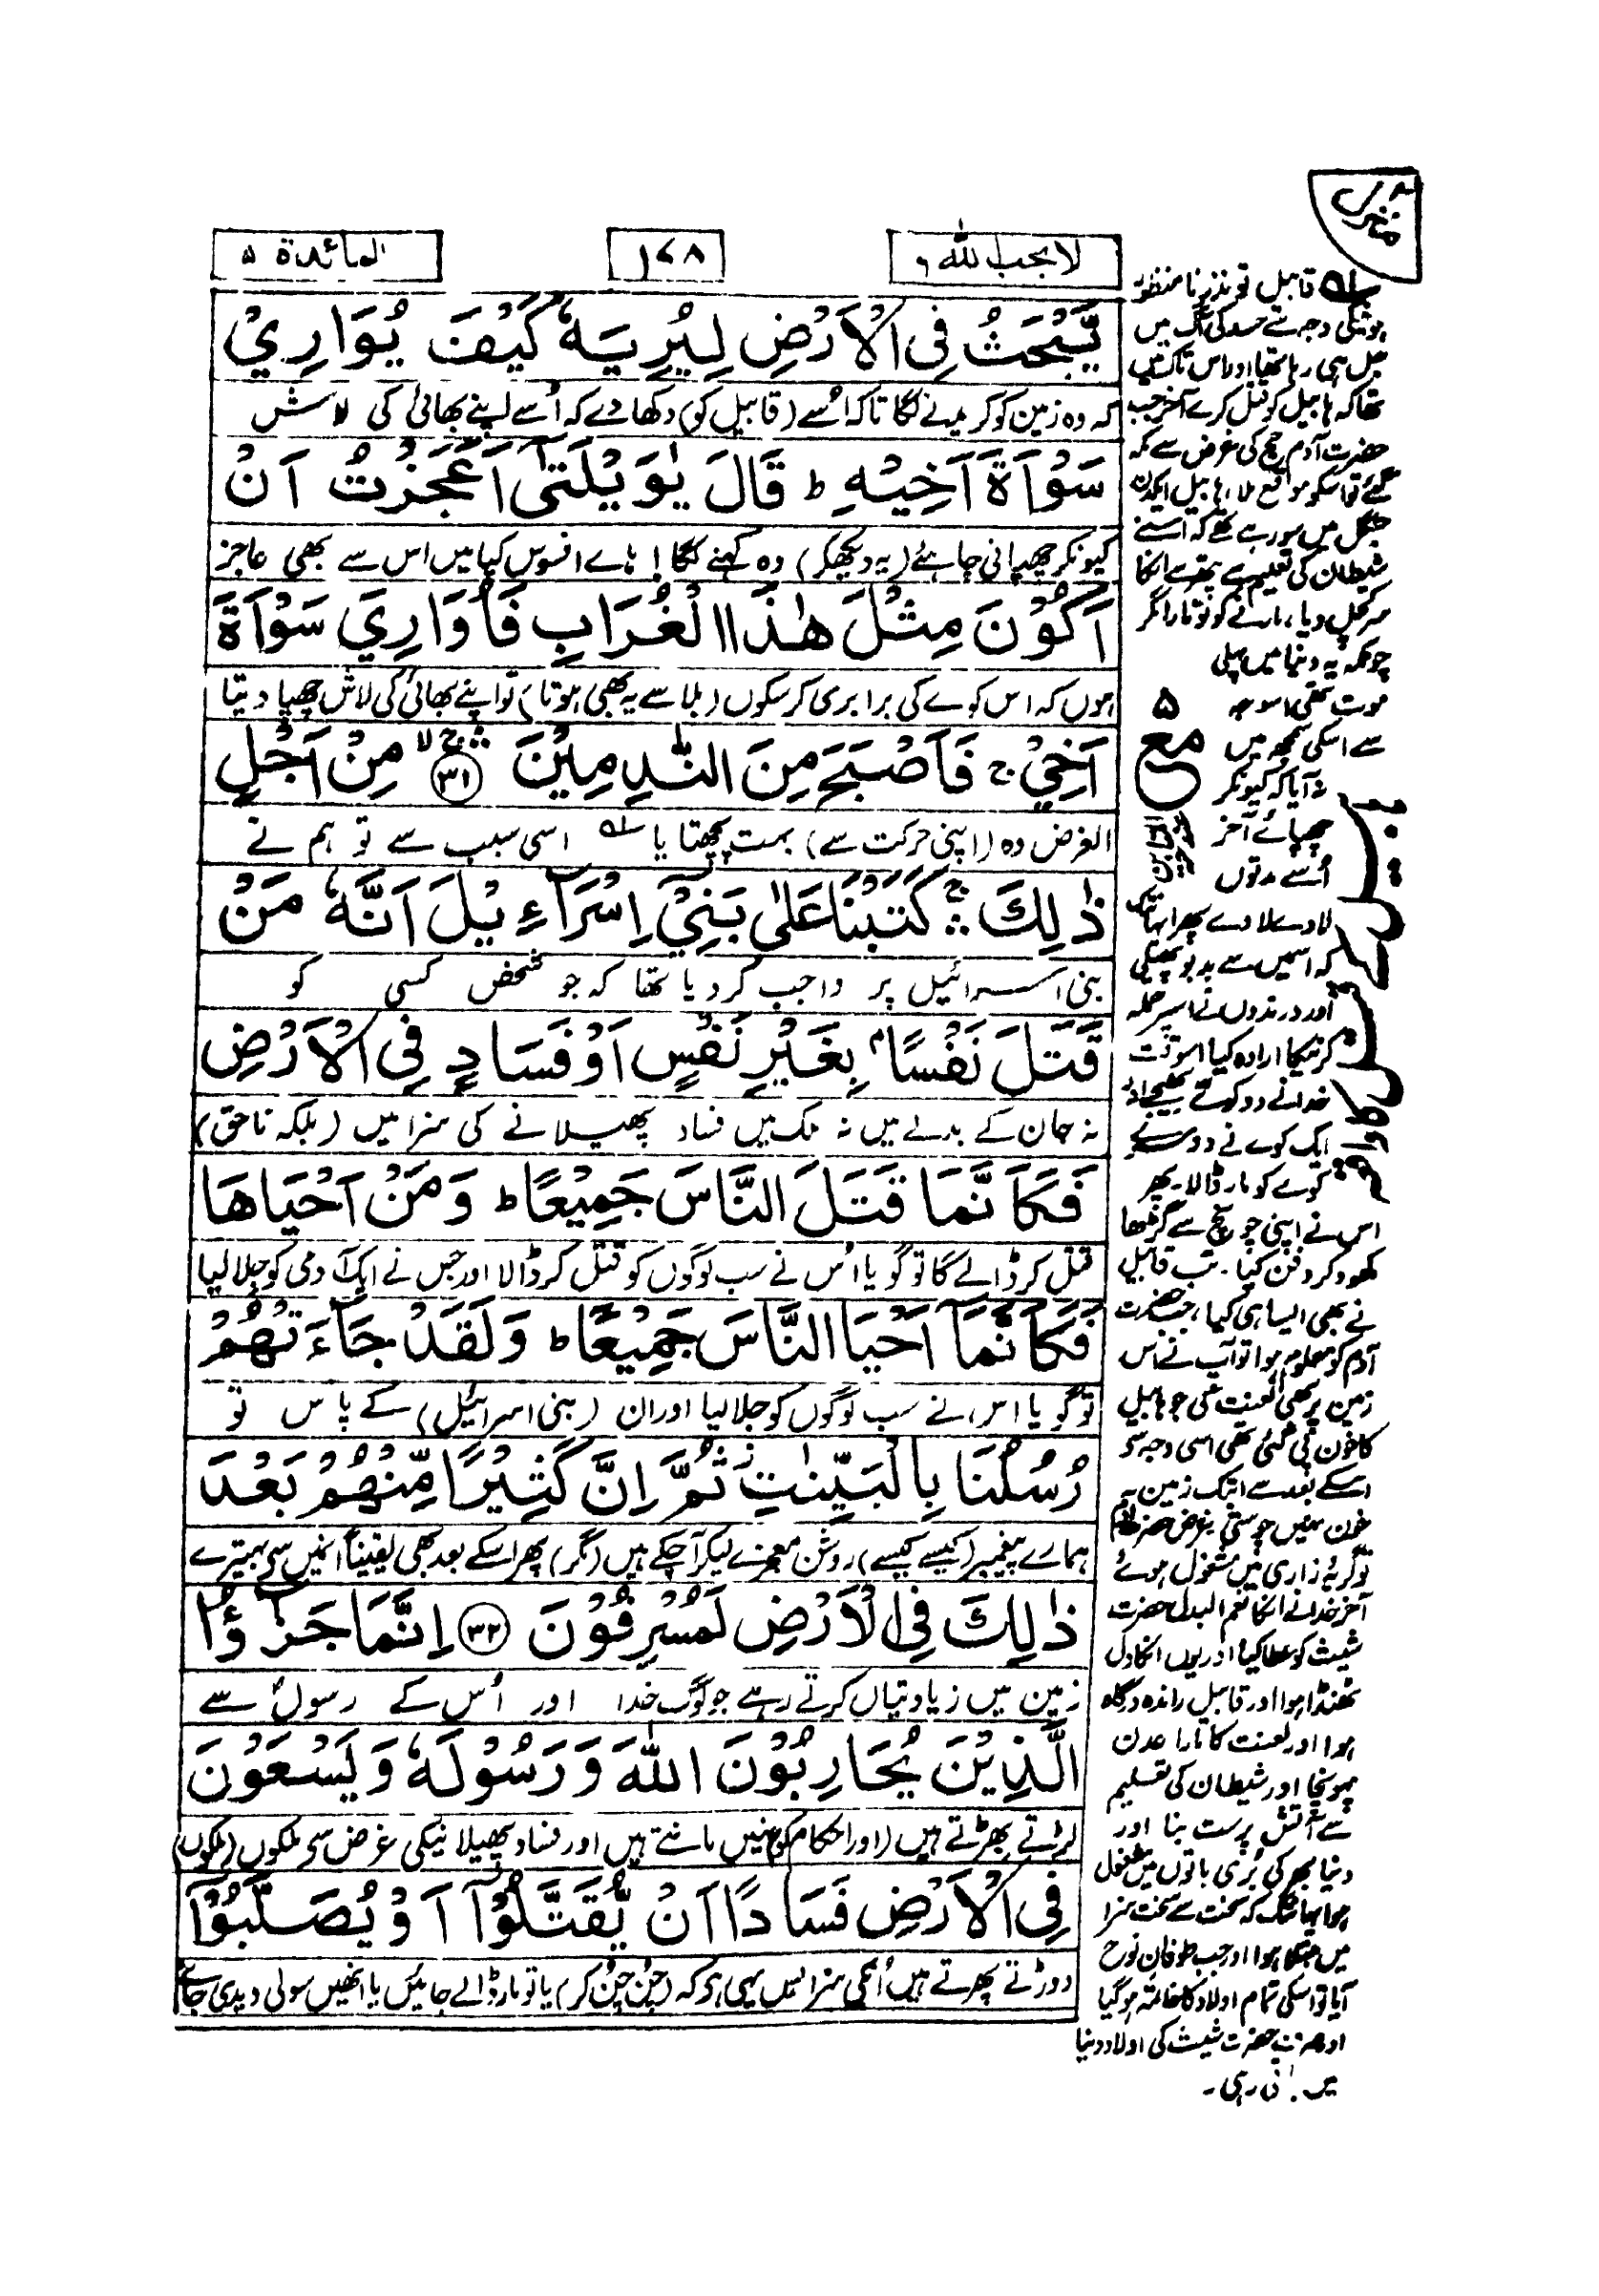 لا یحب الله ۶
۱۷۸
المائدة ۵
يَّبْحَثُ فِى الْاَرْضِ لِيُرِيَهٗ كَيْفَ يُوَارِيْ
کہ وہ زمین کو کریدنے لگا تاکہ اُسے (قابیل کو) دکھا دے کہ اُسے اپنے بھائی کی لاش
سَوْاَةَ اَخِيْهِ ؕ قَالَ يٰوَيْلَتٰۤى اَعَجَزْتُ اَنْ
کیونکر چھپانی چاہئے (یہ دیکھکر) وہ کہنے لگا ! ہاے افسوس کیا میں اس سے بھی عاجز
اَكُوْنَ مِثْلَ هٰذَا الْغُرَابِ فَاُوَارِيَ سَوْاَةَ
ہوں کہ اس کوے کی برابری کر سکوں (بلا سے یہ بھی ہوتا) تو اپنے بھائی کی لاش چھپا دیتا
اَخِيْ ۚ فَاَصْبَحَ مِنَ النّٰدِمِيْنَ ۛۚۙ ﴿۳۱﴾ مِنْ اَجْلِ
الغرض وہ (اپنی حرکت سے) بہت پچھتایا ؎ اسی سبب سے تو ہم نے
ذٰلِكَ ۛۚ كَتَبْنَا عَلٰى بَنِيْۤ اِسْرَآءِيْلَ اَنَّهٗ مَنْ
بنی اسرائیل پر واجب کر دیا تھا کہ جو شخص کسی کو
قَتَلَ نَفْسًاۢ بِغَيْرِ نَفْسٍ اَوْ فَسَادٍ فِى الْاَرْضِ
نہ جان کے بدلے میں نہ ملک میں فساد پھیلانے کی سزا میں (بلکہ ناحق)
فَكَاَنَّمَا قَتَلَ النَّاسَ جَمِيْعًا ؕ وَمَنْ اَحْيَاهَا
قتل کر ڈالے گا تو گویا اُس نے سب لوگوں کو قتل کر ڈالا اور جس نے ایک آدمی کو جلا لیا
فَكَاَنَّمَاۤ اَحْيَا النَّاسَ جَمِيْعًا ؕ وَلَقَدْ جَآءَتْهُمْ
تو گویا اس نے سب لوگوں کو جلا لیا اور ان (بنی اسرائیل) کے پاس تو
رُسُلُنَا بِالْبَيِّنٰتِ ز ثُمَّ اِنَّ كَثِيْرًا مِّنْهُمْ بَعْدَ
ہمارے پیغمبر (کیسے کیسے) روشن معجزے لیکر آ چکے ہیں (مگر) پھر اسکے بعد بھی یقیناً انمیں سے بہتیرے
ذٰلِكَ فِى الْاَرْضِ لَمُسْرِفُوْنَ ﴿۳۲﴾ اِنَّمَا جَزٰٓؤُا
زمین میں زیادتیاں کرتے رہے جو لوگ خدا اور اُس کے رسول سے
الَّذِيْنَ يُحَارِبُوْنَ اللّٰهَ وَرَسُوْلَهٗ وَيَسْعَوْنَ
لڑتے بھڑتے ہیں (اور احکام کو نہیں مانتے ہیں اور فساد پھیلانیکی غرض سے ملکوں (ملکوں)
فِى الْاَرْضِ فَسَادًا اَنْ يُّقَتَّلُوْۤا اَوْ يُصَلَّبُوْۤا
دوڑتے پھرتے ہیں اُنکی سزا بس یہی ہے کہ (چُن چُن کر) یا تو مار ڈالے جائیں یا انھیں سولی دیدی جائے
قابیل تو نذر نا منظور
ہونیکی وجہ سے حسد کی آگ میں
جل ہی رہا تھا اور اس تاک میں
تھا کہ ہابیل کو قتل کرے آخر جب
حضرت آدم حج کی غرض سے مکہ
گئے تو اسکو موقع ملا، ہابیل ایکدن
جنگل میں سو رہے تھے کہ اسنے
شیطان کی تعلیم سے پتھر سے انکا
سر کچل دیا، مارنے کو تو مارا مگر
چونکہ یہ دنیا میں پہلی
موت تھی اسوجہ
سے اسکی سمجھ میں
نہ آیا کہ کیونکر
چھپائے آخر
اُسے مدتوں
لادے لادے پھرا یہانتک
کہ اسمیں سے بدبو پھیلی
اور درندوں نے اسپر حملہ
کرنیکا ارادہ کیا اسوقت
خدا نے دو کوے بھیجے اور
ایک کوے نے دوسرے
کوے کو مار ڈالا۔ پھر
اس نے اپنی چونچ سے گڑھا
کھود کر دفن کیا۔ تب قابیل
نے بھی ایسا ہی کیا، جب حضرت
آدم کو معلوم ہوا تو آپ نے اس
زمین پر بھی لعنت کی جو ہابیل
کا خون پی گئی تھی اسی وجہ سے
اسکے بعد سے ابتک زمین
خون نہیں چوستی غرض حضرت آدم
تو گریہ زاری میں مشغول ہوئے
آخر خدا نے انکا نعم البدل حضرت
شیث کو عطا کیا اور یوں انکا دل
ٹھنڈا ہوا اور قابیل راندہ درگاہ
ہوا اور لعنت کا مارا عدن
پہونچا اور شیطان کی تعلیم
سے آتش پرست بنا اور
دنیا بھر کی بُری باتوں میں مشغول
ہوا یہانتک کہ سخت سے سخت سزا
میں مبتلا ہوا اور جب طوفان نوح
آیا تو اسکی تمام اولاد کا خاتمہ ہو گیا
اور صرف حضرت شیث کی اولاد دنیا
میں باقی رہی۔
۵
مع